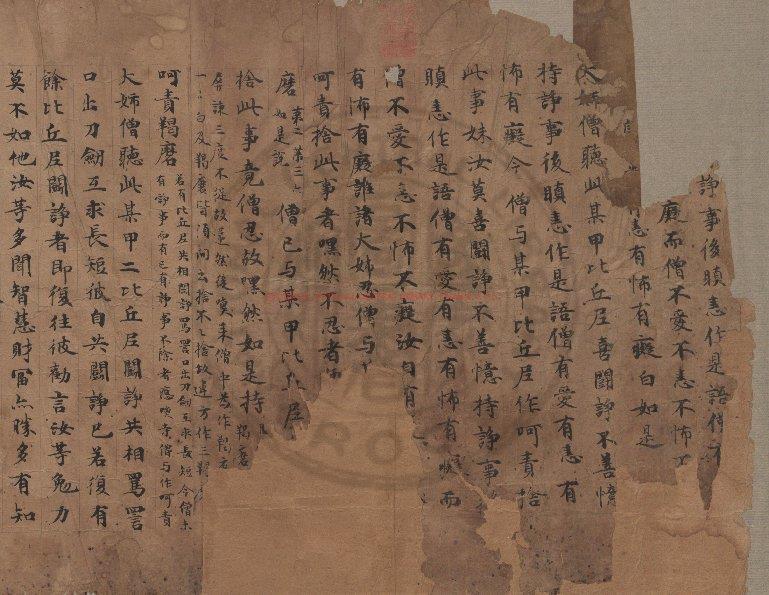 諍事後瞋恚作是語僧有
癡而僧不愛不恚不怖不
有恚有怖有癡白如是
大姉僧聽此某甲比丘尼喜鬪諍不善憶
持諍事後瞋恚作是語僧有愛有恚有
怖有癡今僧与某甲比丘尼作呵責捨
此事妹汝莫喜鬪諍不善憶持諍事
瞋恚作是語僧有愛有恚有怖有癡而
僧不愛不恚不怖不癡汝自有
有怖有癡誰諸大姉忍僧与
呵責捨此事者嘿然不忍者
磨 第二第三 如是說 僧已与某甲比丘尼
捨此事竟僧忍故嘿然如是持 羯磨
屏諫三度不從故
一一白及羯磨皆須問
呵責羯磨 若有比丘尼共相鬪諍罵詈口出刀劍互求長短令僧未
有諍事而有已有諍事不除者應
大姉僧聽此某甲二比丘尼鬪諍共相罵詈
口出刀劍互求長短彼自共鬪諍已若復有
餘比丘尼鬪諍者即復往彼勸言汝等勉力
莫不如他汝等多聞智慧財富亦勝多有知